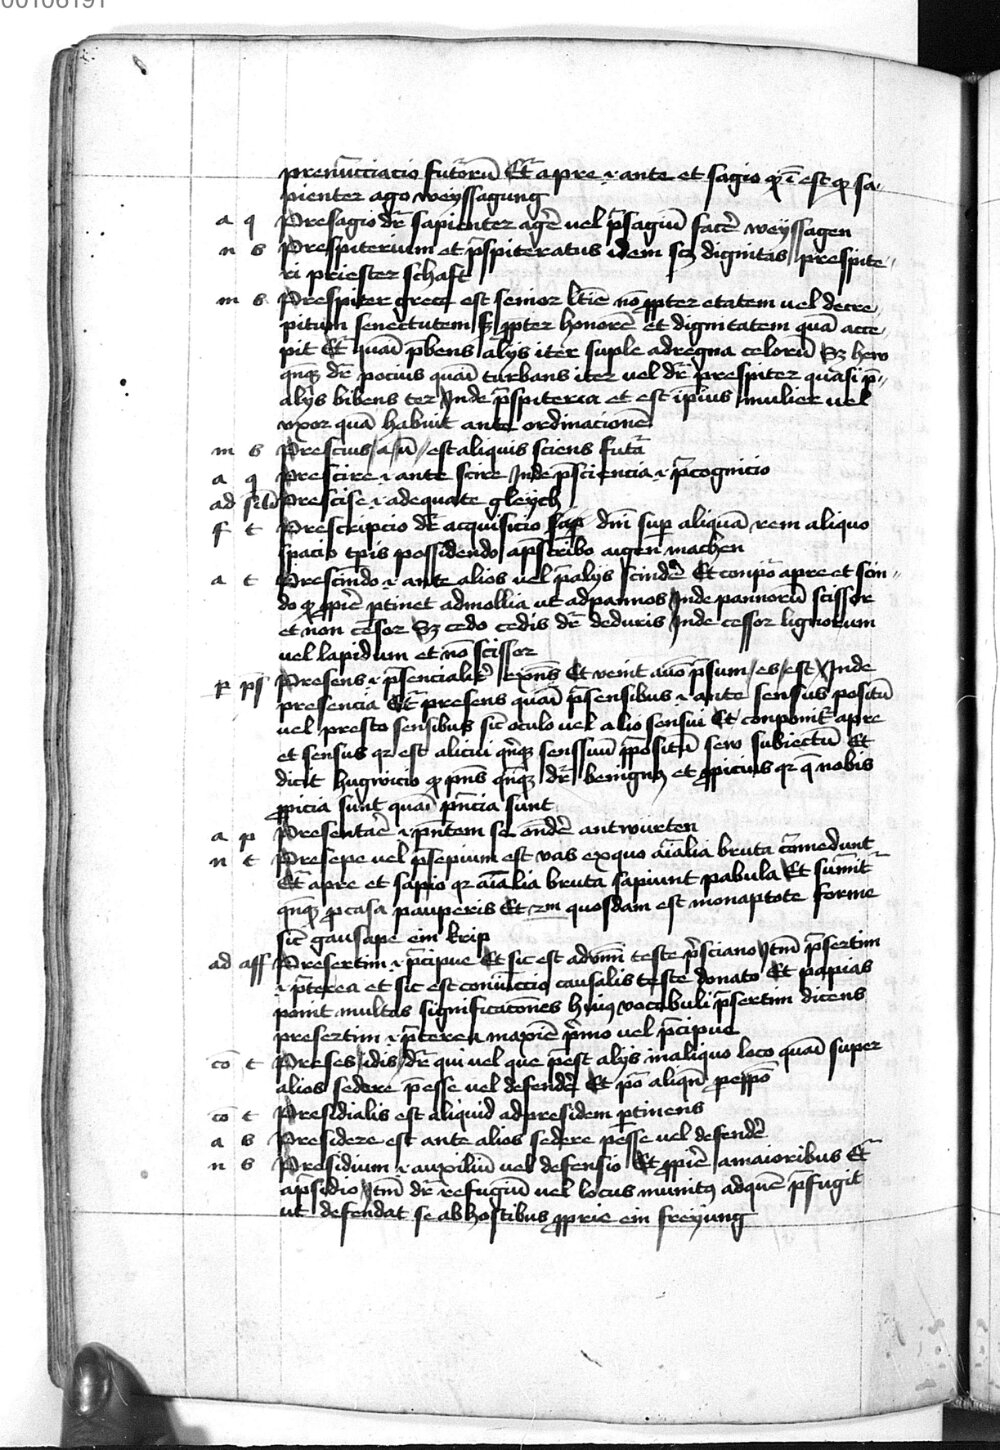 00106191
prenu̅cciacio futˀoru̅ Et̅ a pre ⁊ ante et sagio qͥ ē est qͥ sa,
pienter ago weyssagung
a q Presagio dr̅ sapienter age̅ vel p̅sagiu̅ face̅ weyssagen
n s Prespiterium et p̅spiteratus idem scꝫ dignitas prespite,,
ri priester schaft
m s Prespiter grece est senior lati̅e no̅ ꝓpter etatem vel decre,
pitum senectutem sꝫ ꝓpter honore̅ et dignitatem qua̅ acce
pit Et̅ quasi p̅bens alijs iter suple ad regna celoru̅ Sꝫ hew
qn̅qꝫ dr̅ pocius quasi turbans iter vel dr̅ prespiter quasi p̅,,
alijs bibens ter Jnde p̅spiterca et est ip̅ius mulier vel
vxor qua̅ habuit ante ordinacione̅
m s Prescius/a/u̅/ est aliquis sciens futˀa
a q Prescire ⁊ ante scire Jnde p̅sciencia ⁊ p̅cognicio
ad Prescise ⁊ adequate gleych
f t Prescripcio dr̅ acquisicio dn̅i sup̱ aliqua̅ rem aliquo
spacio tp̅is possidendo a p̅scribo aigen machen
a t Prescindo ⁊ ante alios vel p̅ alijs scinde̅ Et conpo̅ a pre et scin,,
do qͥ ꝓpi̅e ꝑtinet ad mollia ut ad pannos Jnde pannoru̅ scissor
et non ce̅sor Sꝫ cedo cedis dr̅ de duris Jnde cessor lignorum
vel lapidum et no̅ scissor
Presens ⁊ p̅sencialitˀ Et venit a p̅sum/es/est Jnde
presencia Et̅ presens quasi p̅ sensibus ⁊ ante sensus positu̅
vel presto sensibus sic̅ oculo vel alio sensui Et conponitˀ a pre
et sensus qꝛ est alicui qn̅qꝫ senssuu̅ p̅positu̅ sew subiectu̅ Et
dicit hugwicio qͥ pn̅s qn̅qꝫ dr̅ benignꝰ et ꝓpicius qꝛ q̅ nobis
ꝓpicia sunt quasi pn̅cia sunt
a p Presentare̅ ⁊ pn̅tem se on̅de̅ antwurten
n t Presepe vel p̅sepium est vas ex quo ai̅alia bruta co̅medunt
Et̅ a pre et sapio qꝛ ai̅alia bruta sapiunt pabula Et sumitˀ
qn̅qꝫ ꝓ casa pauperis Et ẜm quosdam est monaptote forme
sic̅ gausape ein krip
ad aff Presertim ⁊ p̅cipue Et sic est adv̅m teste p̅sciano Jtm̅ p̅sertim
⁊ p̅terea et sic est coniu̅ccio causalis teste donato Et papias
ponit multas significaco̅nes huiꝰ vocabuli p̅sertim dicens
presertim ⁊ p̅terea maxi̅e p̅mo vel p̅cipue
co̅ t Preses/idis/dr̅ qui vel que p̅est alijs in aliquo loco quasi super
alios sedere p̅esse vel defende̅
co̅ t Presidialis est aliquid ad presidem ꝑtinens
a s Presidere est ante alios sedere p̅esse vel defende̅
n s Presidium ⁊ auxiliu̅ vel defensio Et ꝓpi̅e a maioribus Et̅
a p̅sidio Jtm̅ dr̅ refugiu̅ vel locus munitꝰ ad que̅ p̅fugit
ut defendat se ab hostibus ꝓprie ein freyung